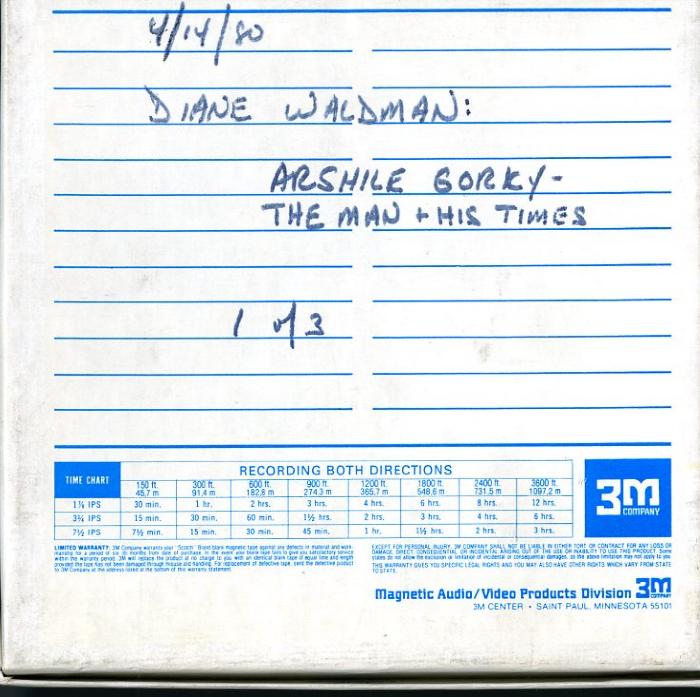 4/14/80
DIANE WALDMAN:
ARSHILE GORKY-
THE MAN + HIS TIMES
1 of 3
TIME CHART
RECORDING BOTH DIRECTIONS
150 ft. 300 ft. 600 ft. 900 ft. 1200 ft. 1800 ft. 2400 ft. 3600 ft.
45,7 m 91,4 m 182,8 m 274,3 m 365,7 m 548,6 m 731,5 m 1097,2 m
1⅞ IPS 30 min. 1 hr. 2 hrs. 3 hrs. 4 hrs. 6 hrs. 8 hrs. 12 hrs.
3¾ IPS 15 min. 30 min. 60 min. 1½ hrs. 2 hrs. 3 hrs. 4 hrs. 6 hrs.
7½ IPS 7½ min. 15 min. 30 min. 45 min. 1 hr. 1½ hrs. 2 hrs. 3 hrs.
3M
COMPANY
LIMITED WARRANTY: 3M Company warrants your "Scotch" Brand blank magnetic tape against any defects in material and work-
manship for a period of six (6) months from date of purchase in the event your blank tape fails to give you satisfactory service
within the warranty period. 3M will replace the product at no charge to you with an identical blank tape of equal time and length
provided the tape has not been damaged through misuse and handling. For replacement of defective tape, send the defective product
to 3M Company at the address listed at the bottom of this warranty statement.
EXCEPT FOR PERSONAL INJURY, 3M COMPANY SHALL NOT BE LIABLE IN EITHER TORT OR CONTRACT FOR ANY LOSS OR
DAMAGE, DIRECT, CONSEQUENTIAL OR INCIDENTAL ARISING OUT OF THE USE OR INABILITY TO USE THIS PRODUCT. Some
states do not allow the exclusion or limitation of incidental or consequential damages, so the above limitation may not apply to you.
THIS WARRANTY GIVES YOU SPECIFIC LEGAL RIGHTS AND YOU MAY ALSO HAVE OTHER RIGHTS WHICH VARY FROM STATE
TO STATE.
Magnetic Audio/Video Products Division 3M COMPANY
3M CENTER • SAINT PAUL, MINNESOTA 55101